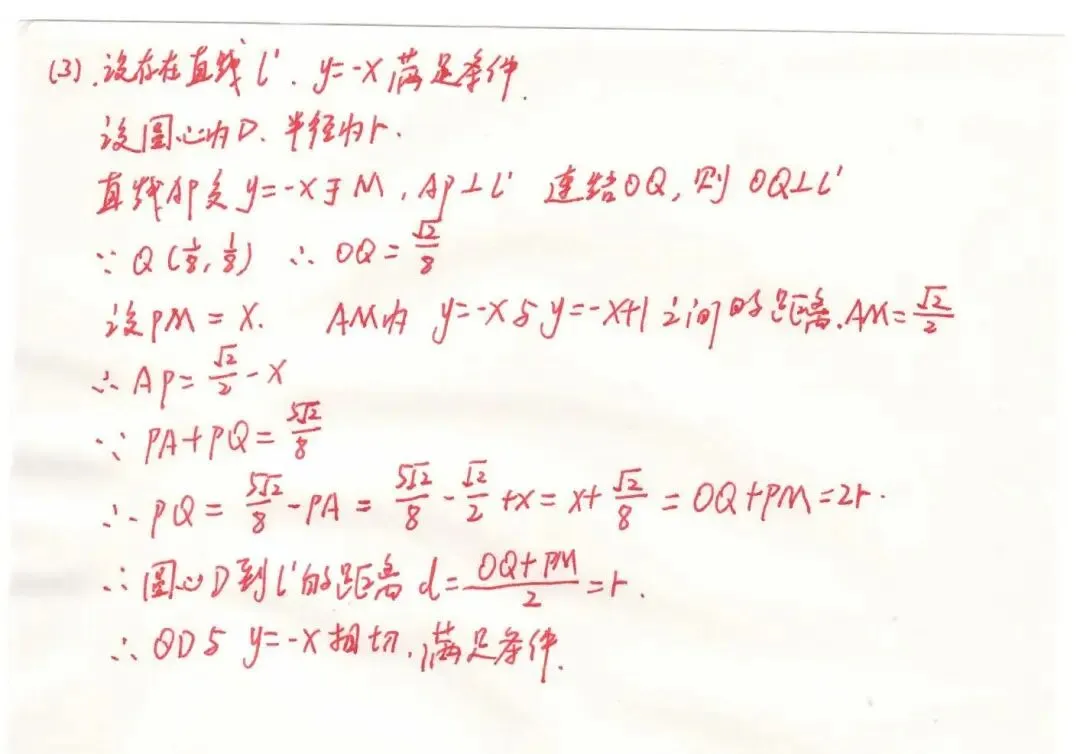 (3).设存在直线 l'. y=-x 满足条件.
设圆心为D.半径为r.
直线AP交y=-x于M, AP⊥l' 连结OQ,则 OQ⊥l'
∵ Q(1/8, 1/8) ∴ OQ=√2/8
设PM=x. AM为 y=-x与y=-x+1之间的距离.AM=√2/2
∴ AP=√2/2-x
∵ PA+PQ=5√2/8
∴ PQ=5√2/8-PA=5√2/8-√2/2+x=x+√2/8=OQ+PM=2r.
∴ 圆心D到l'的距离 d=(OQ+PM)/2=r.
∴ ⊙D与 y=-x相切.满足条件.